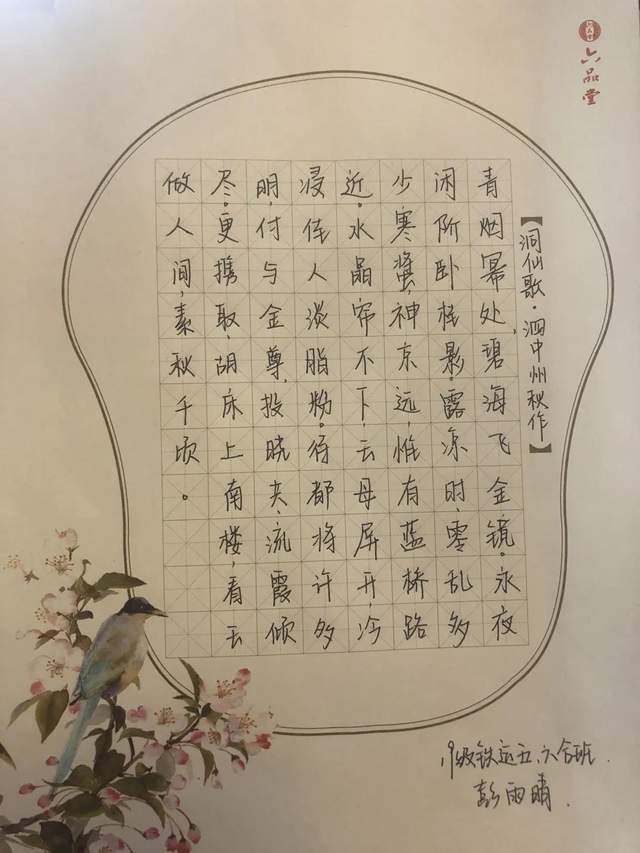 六品堂
【洞仙歌·泗中州秋作】
青烟幂处,碧海飞金镜。永夜
闲阶卧桂影。露凉时,零乱多
少寒螀,神京远,惟有蓝桥路
近。水晶帘不下,云母屏开,冷
浸佳人淡脂粉。待都将许多
明,付与金尊,投晓共流霞倾
尽。更携取,胡床上南楼,看玉
做人间,素秋千顷。
19级铁运五、六合班
彭雨晴